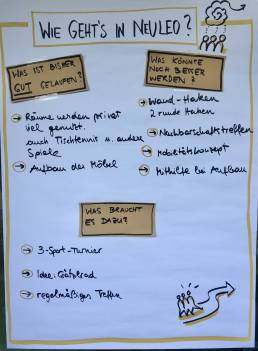 WIE GEHT'S IN NEULEO?
WAS IST BISHER
GUT GELAUFEN?
Räume werden privat
viel genutzt.
auch Tischtennis u. andere
Spiele
Aufbau der Möbel
WAS KÖNNTE
NOCH BESSER
WERDEN?
Wand-Haken
2 runde Haken
Nachbarschaftstreffen
Mobilitätskonzept
Mithilfe bei Aufbau
WAS BRAUCHT
ES DAZU?
3-Sport-Turnier
Idee:
regelmäßiges Treffen